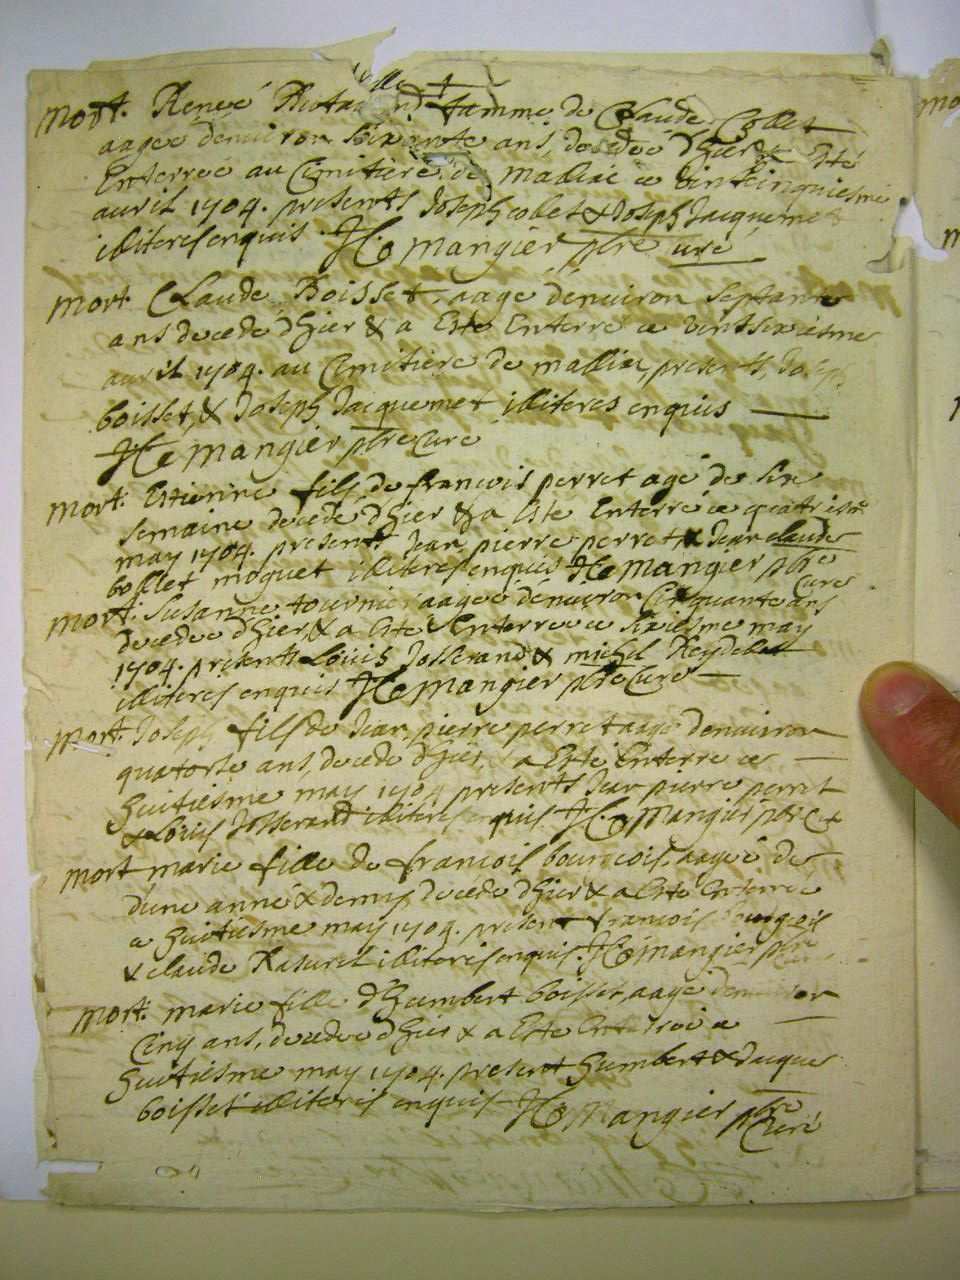 mort. Reneé femme de Claude Collet
aageé denuiron soixante ans, decedeé d'hier & a esté
Enterreé au Cimitiere de malliac ce vintcinquiesme
auril 1704. presents Joseph collet & Joseph Jacquemet
illiteres enquis. Mangier pbre curé
mort. Claude Boisset, aagé denuiron septante
ans decede d'hier & a Esté Enterré ce vintsixiesme
auril 1704. au Cimitière de malliac, presents, Joseph
boisset, & Joseph Jacquemet illiteres enquis
Mangier pbre curé
mort. Estienne fils de francois perret agé de six
semaine decede d'hier & a Esté Enterré ce quatriesme
may 1704. present. Jean pierre perret & Jean claude
bollet moguet illiteres enquis Mangier pbre
curé
mort. Susanne tournier aageé denuiron Cinquante ans
decedeé d'hier, & a Esté Enterreé ce sixiesme may
1704. presents Louis Josserand & michel
illiteres enquis Mangier pbre curé
mort. Joseph fils de Jean pierre perret aagé denuiron
quatorse ans, decede d'hier, & a Esté Enterre ce
huitiesme may 1704 presents Jean pierre perret
& Louis Josserand illiteres enquis Mangier pbre
mort marie fille de francois bourgois, aageé de
d'une anné & demy decede d'hier & a Esté Enterreé
ce huitiesme may 1704. present francois bourgois
& claude Raturel illiteres enquis. Mangier pbre
curé
mort. marie fille d'humbert boisset, aageé denuiron
Cinq ans, decedeé d'hier & a Esté Enterreé ce
huitiesme may 1704. present humbert & Jacques
boisset illiteres enquis Mangier pbre
curé